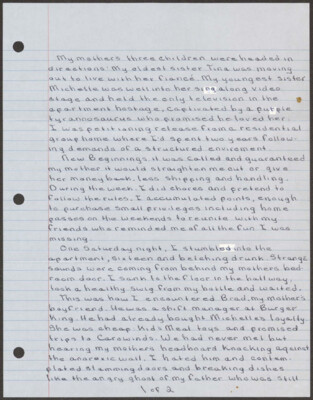 My mothers three children were headed in
directions. My oldest sister Tina was moving
out to live with her fiancé. My youngest sister
Michelle was well into her sing along video
stage and held the only television in the
apartment hostage, captivated by a purple
tyranosaurus who promised he loved her.
I was petitioning release from a residential
group home where I'd spent two years follow-
ing demands of a structured enviroment.
New Beginnings, it was called and guaranteed
my mother it would straighten me out or give
her money back, less shipping and handling.
During the week, I did chores and pretend to
follow the rules. I accumulated points, enough
to purchase small privileges including home
passes on the weekends to reunite with my
friends who reminded me of all the fun I was
missing.
One Saturday night, I stumbled into the
apartment, sixteen and belching drunk. Strange
sounds were coming from behind my mothers bed-
room door. I sank to the floor in the hallway,
took a healthy swig from my bottle and waited.
This was how I encountered Brad, my mothers
boyfriend. He was a shift manager at Burger
King. He had already bought Michelles loyalty.
She was cheap. Kids Meal toys and promised
trips to Carowinds. We had never met but
hearing my mothers headboard knocking against
the anorexic wall, I hated him and contem-
plated slamming doors and breaking dishes
like the angry ghost of my father who was still
1 of 2